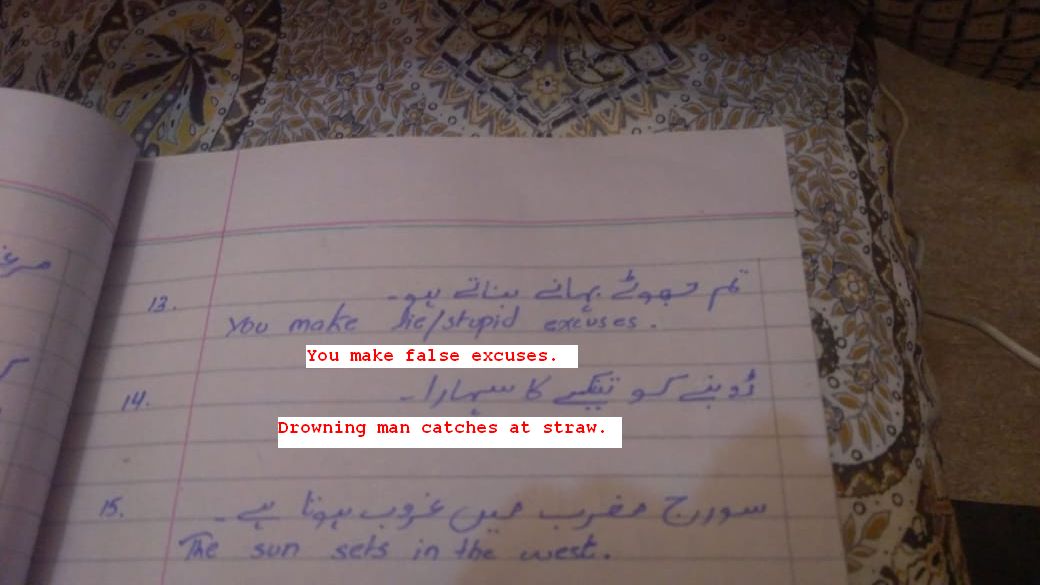 مرغی
13.
تم جھوٹے بہانے بناتے ہو۔
You make lie/stupid excuses.
You make false excuses.
14.
ڈوبنے کو تنکے کا سہارا۔
Drowning man catches at straw.
15.
سورج مغرب میں غروب ہوتا ہے۔
The sun sets in the west.